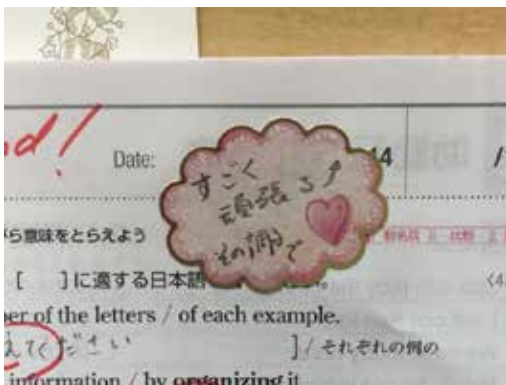 d!
Date:
4
すごく
頑張ろ↑
その調で
ら意味をとらえよう
[ ]に適する日本語
er of the letters / of each example.
えてください ] / それぞれの例の
information / by organizing it